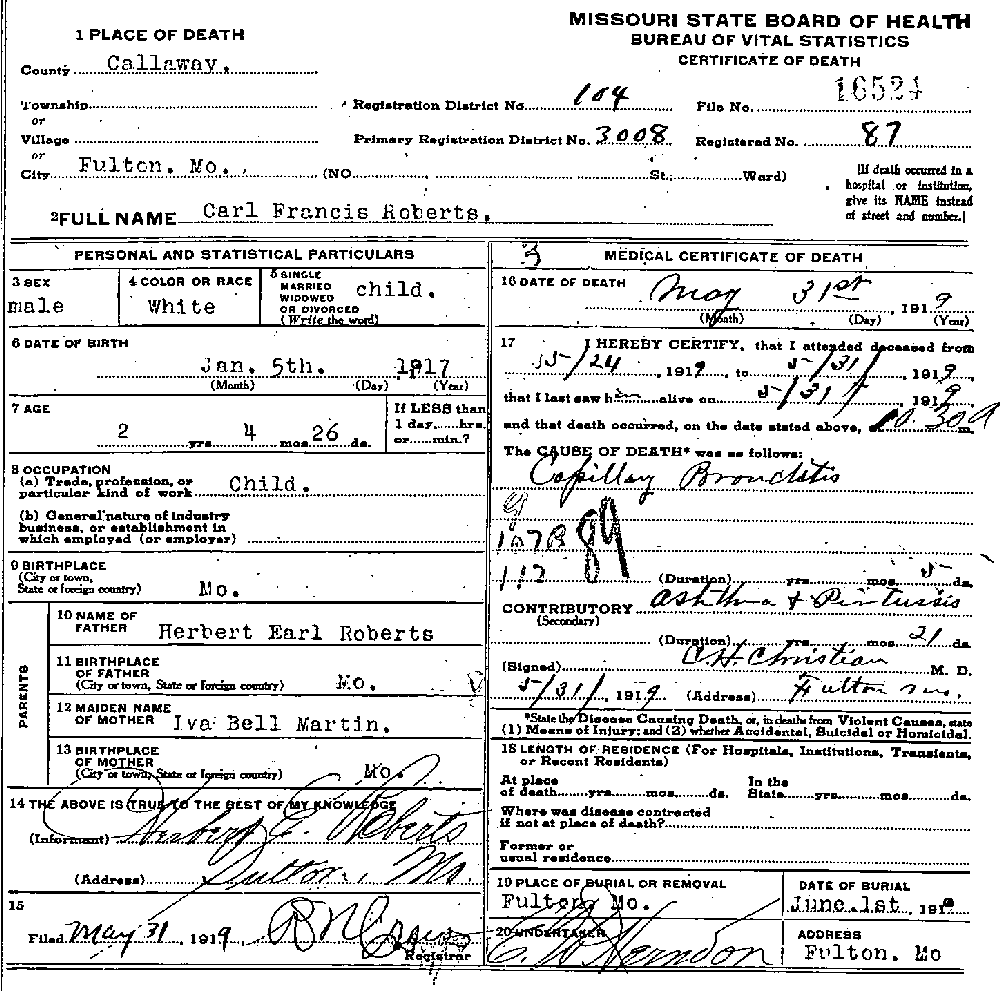 MISSOURI STATE BOARD OF HEALTH
BUREAU OF VITAL STATISTICS
CERTIFICATE OF DEATH
1 PLACE OF DEATH
County Callaway.
Township
or
Village
or
City Fulton. Mo. (NO. St.; Ward)
Registration District No. 104
Primary Registration District No. 3008
File No. 16524
Registered No. 87
[If death occurred in a hospital or institution, give its NAME instead of street and number.]
2 FULL NAME Carl Francis Roberts.
PERSONAL AND STATISTICAL PARTICULARS
3 SEX male
4 COLOR OR RACE White
5 SINGLE MARRIED WIDOWED OR DIVORCED (Write the word) child.
6 DATE OF BIRTH
Jan. 5th. 1917
(Month) (Day) (Year)
7 AGE
2 yrs. 4 mos. 26 ds.
If LESS than 1 day......hrs. or......min.?
8 OCCUPATION
(a) Trade, profession, or particular kind of work Child.
(b) General nature of industry business, or establishment in which employed (or employer)
9 BIRTHPLACE
(City or town, State or foreign country) Mo.
PARENTS
10 NAME OF FATHER Herbert Earl Roberts
11 BIRTHPLACE OF FATHER
(City or town, State or foreign country) Mo.
12 MAIDEN NAME OF MOTHER Iva Bell Martin.
13 BIRTHPLACE OF MOTHER
(City or town, State or foreign country) Mo.
14 THE ABOVE IS TRUE TO THE BEST OF MY KNOWLEDGE
(Informant) Herbert E. Roberts
(Address) Fulton, Mo.
15
Filed May 31, 1919
Registrar
3
MEDICAL CERTIFICATE OF DEATH
16 DATE OF DEATH May 31st, 1919
(Month) (Day) (Year)
17 I HEREBY CERTIFY, that I attended deceased from
5/24, 1919, to 5/31, 1919
that I last saw him alive on 5/31, 1919
and that death occurred, on the date stated above, at 10.30 a m.
The CAUSE OF DEATH* was as follows:
Capillay Bronchitis
9
107B 89
112
(Duration) yrs. mos. 5 ds.
CONTRIBUTORY Ashthma & Pirtussis
(Secondary)
(Duration) yrs. mos. 21 ds.
(Signed) C.H. Christian M. D.
5/31/1919 (Address) Fulton Mo.
*State the Disease Causing Death, or, in deaths from Violent Causes, state
(1) Means of Injury; and (2) whether Accidental, Suicidal or Homicidal.
18 LENGTH OF RESIDENCE (For Hospitals, Institutions, Transients, or Recent Residents)
At place of death......yrs......mos......ds.
In the State......yrs......mos......ds.
Where was disease contracted
if not at place of death?
Former or
usual residence
19 PLACE OF BURIAL OR REMOVAL
Fulton, Mo.
DATE OF BURIAL
June.1st, 1919
20 UNDERTAKER
Herndon
ADDRESS
Fulton. Mo